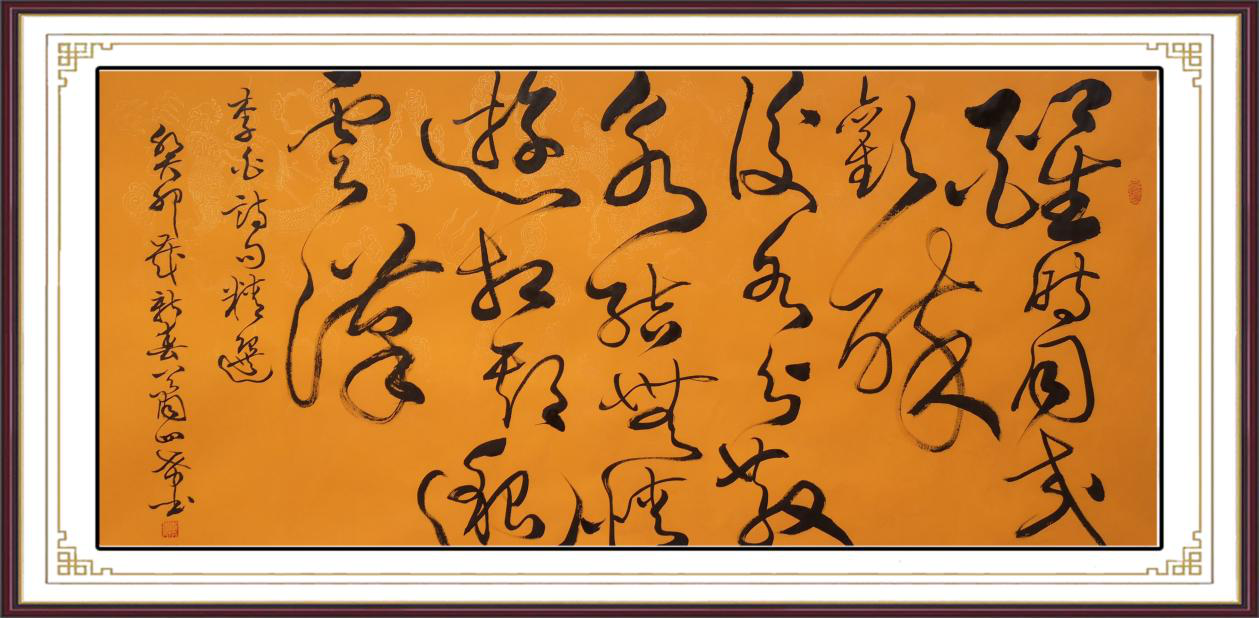 醒時同交
歡醉
後各分散
永結無情
遊相期邈
雲漢
李白詩句精選
癸卯歲新春